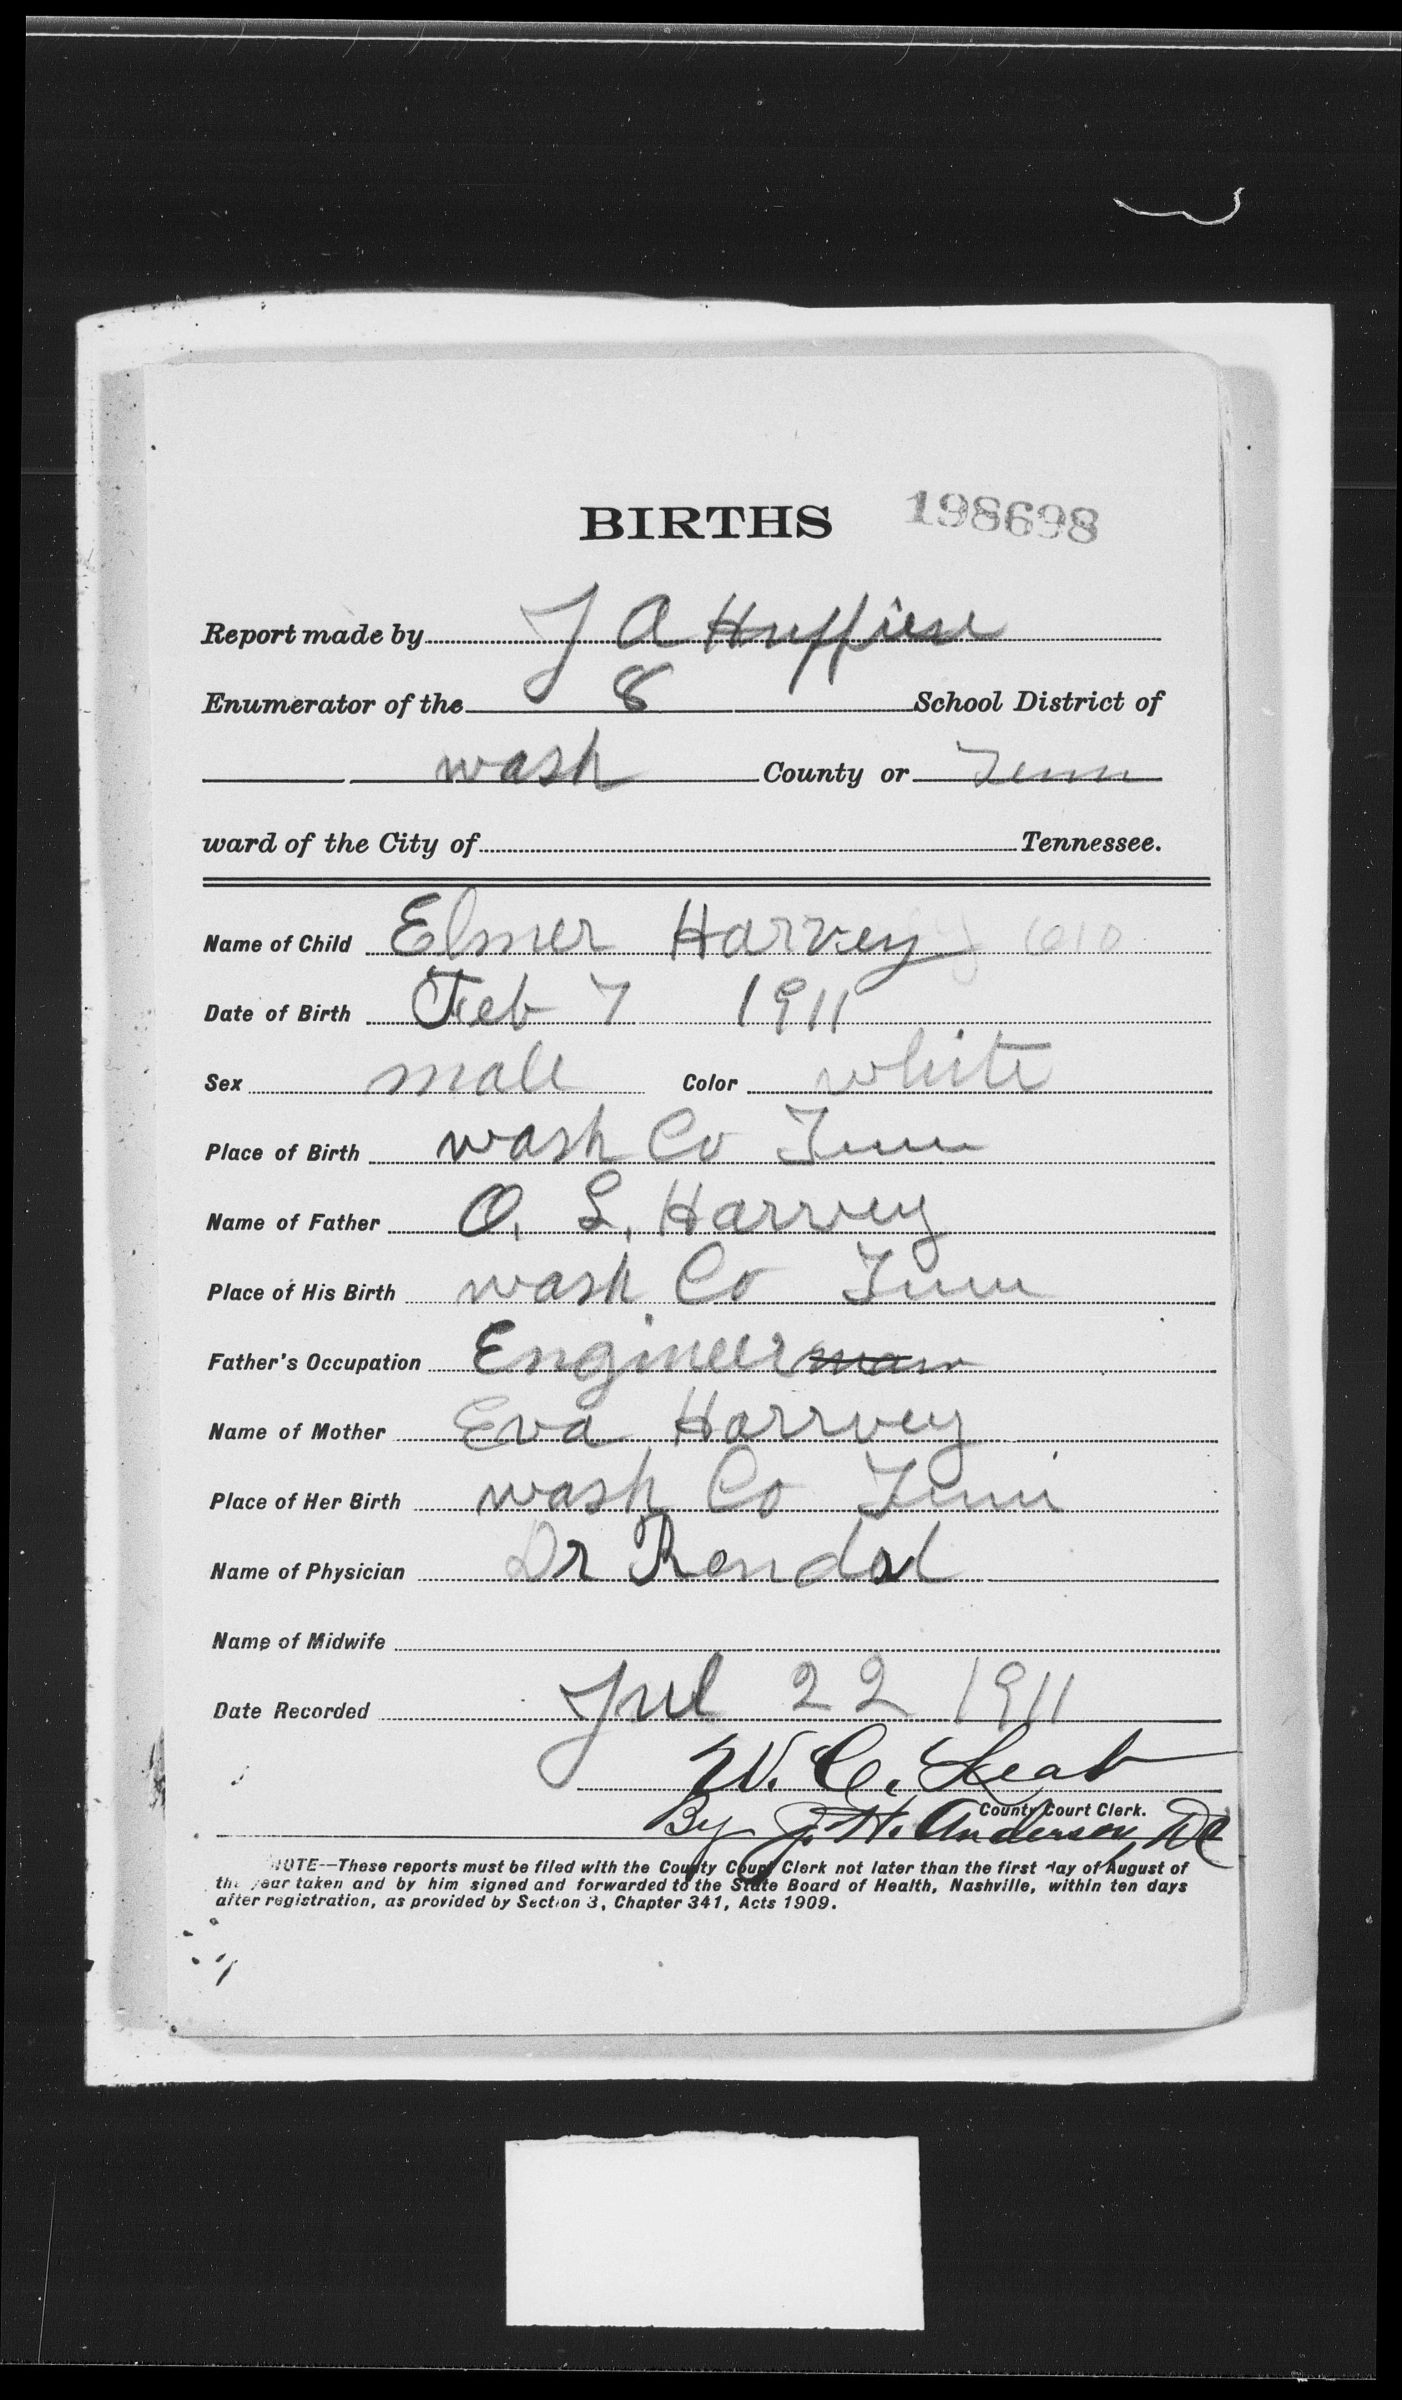 BIRTHS 198698
Report made by J A Huffine
Enumerator of the 8 School District of
wash County or Tenn
ward of the City of Tennessee.
Name of Child Elmer Harvey
Date of Birth Feb 7 1911
Sex male Color white
Place of Birth wash Co Tenn
Name of Father O. L. Harvey
Place of His Birth wash Co Tenn
Father's Occupation Engineer
Name of Mother Eva Harvey
Place of Her Birth wash Co Tenn
Name of Physician Dr
Name of Midwife
Date Recorded Jul 22 1911
W. C.
County Court Clerk.
By J. H. Anderson, DC
NOTE--These reports must be filed with the County Court Clerk not later than the first day of August of
the year taken and by him signed and forwarded to the State Board of Health, Nashville, within ten days
after registration, as provided by Section 3, Chapter 341, Acts 1909.